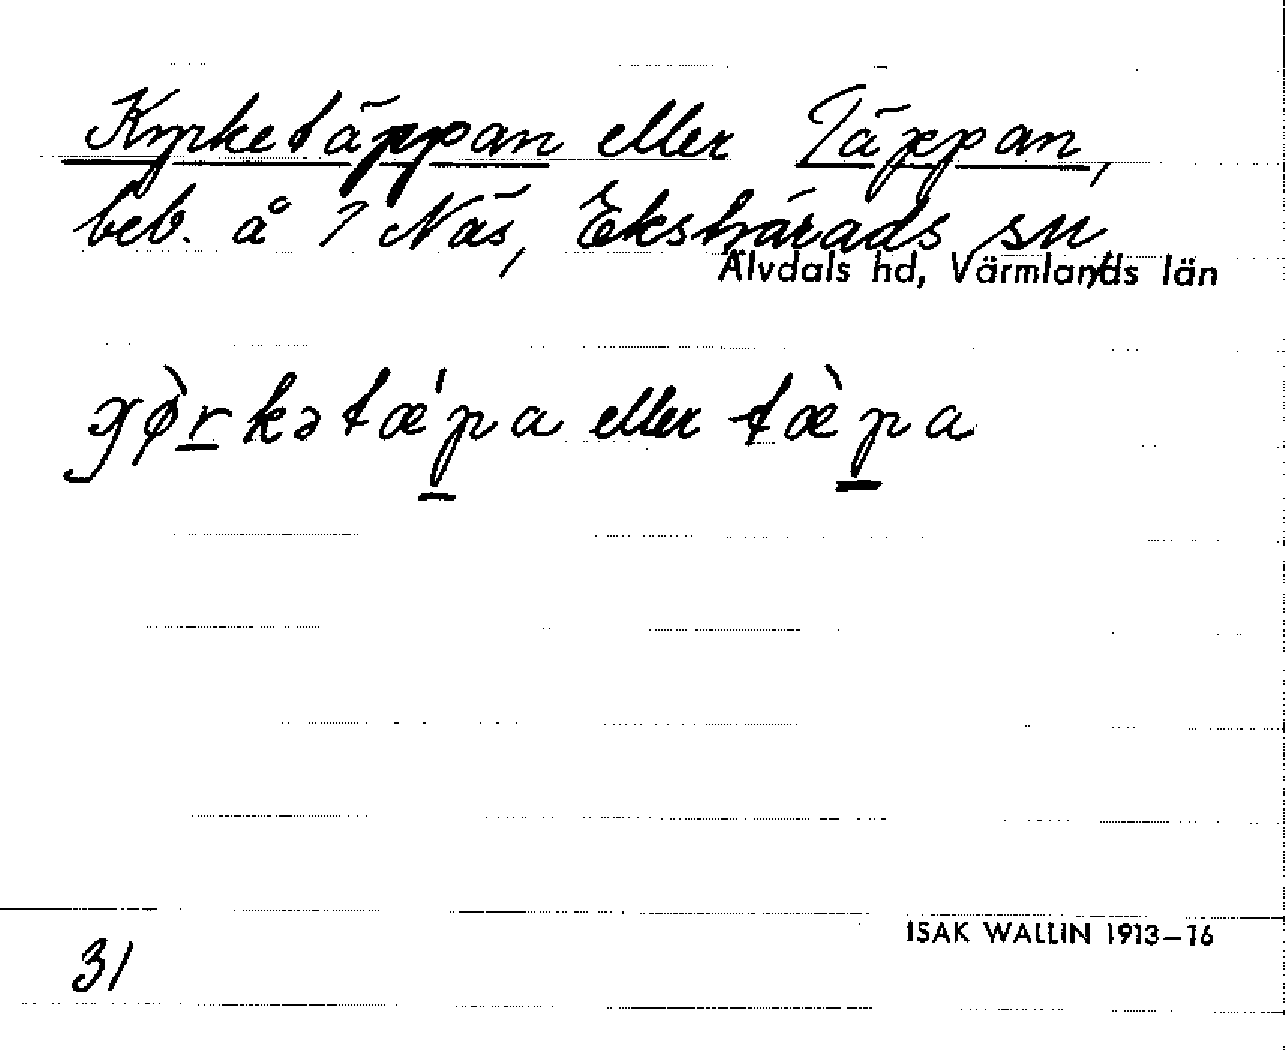 Kyrketäppan eller Täppan,
beb. å 1 Näs, Ekshärads sn,
Älvdals hd, Värmlands län
gø̀rkətæ'pa eller tæ̀pa
31
ISAK WALLIN 1913–16